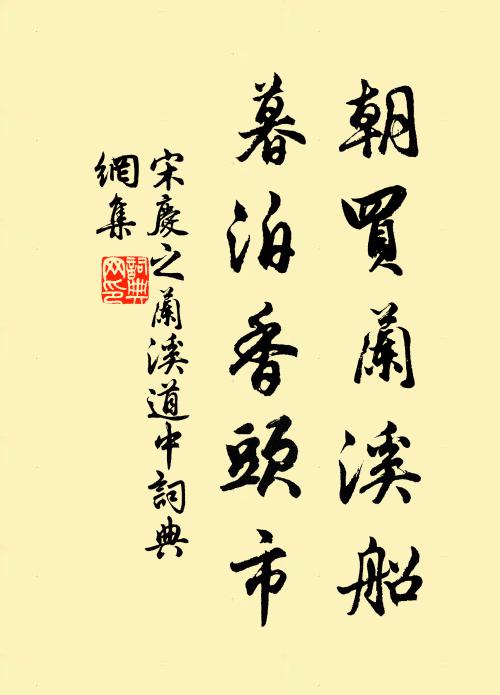 朝買蘭溪船
暮泊香頭市
宋慶之蘭溪道中詞典
網集
詞典
网印